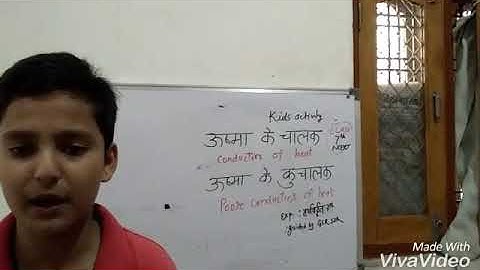 Kids activity
ऊष्मा के चालक
Class
7th
NCERT
Conductors of heat
ऊष्मा के कुचालक
Poor conductors of heat
Exp :
guided by
Made With
VivaVideo